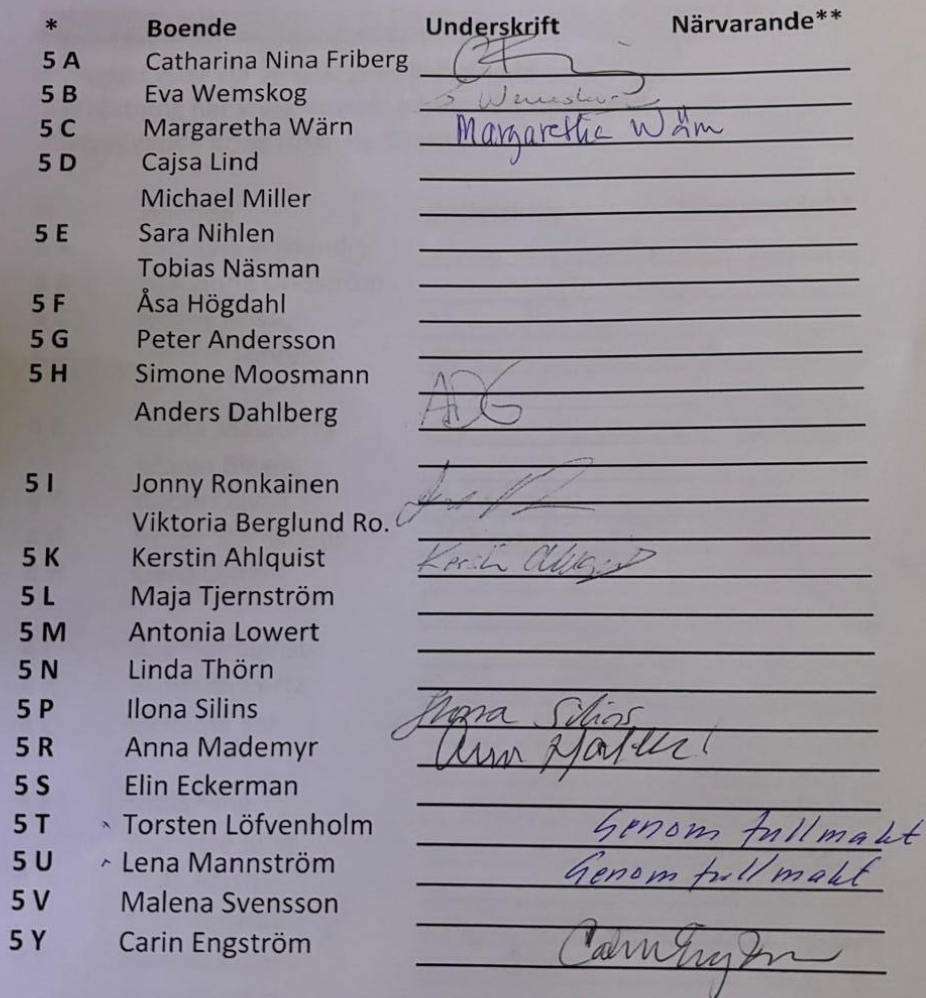 * Boende Underskrift Närvarande**
5 A Catharina Nina Friberg
5 B Eva Wemskog
5 C Margaretha Wärn Margaretha Wärn
5 D Cajsa Lind
Michael Miller
5 E Sara Nihlen
Tobias Näsman
5 F Åsa Högdahl
5 G Peter Andersson
5 H Simone Moosmann
Anders Dahlberg
5 I Jonny Ronkainen
Viktoria Berglund Ro.
5 K Kerstin Ahlquist Kerstin Ahlquist
5 L Maja Tjernström
5 M Antonia Lowert
5 N Linda Thörn
5 P Ilona Silins Ilona Silins
5 R Anna Mademyr
5 S Elin Eckerman
5 T Torsten Löfvenholm Genom fullmakt
5 U Lena Mannström Genom fullmakt
5 V Malena Svensson
5 Y Carin Engström Carin Engström